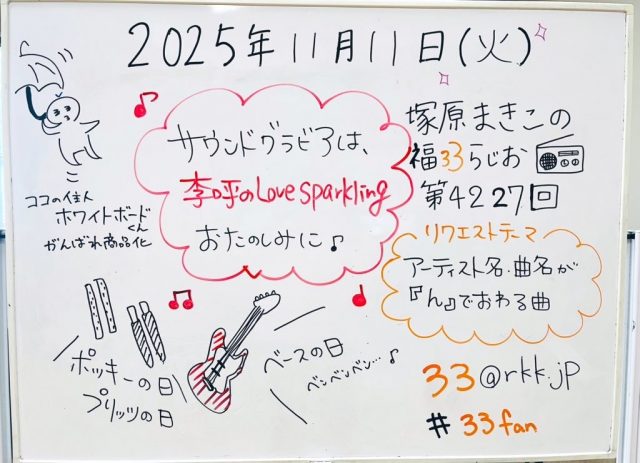 2025年11月11日(火)
サウンドグラビアは、
李浮のLove Sparkling
おたのしみに♪
塚原まきこの
福33らじお
第4227回
リクエストテーマ
アーティスト名・曲名が
『ん』でおわる曲
ココの住人
ホワイトボード
くん
がんばれ商品化
ポッキーの日
プリッツの日
ベースの日
ベンベンベン…♪
33@rkk.jp
#33fan